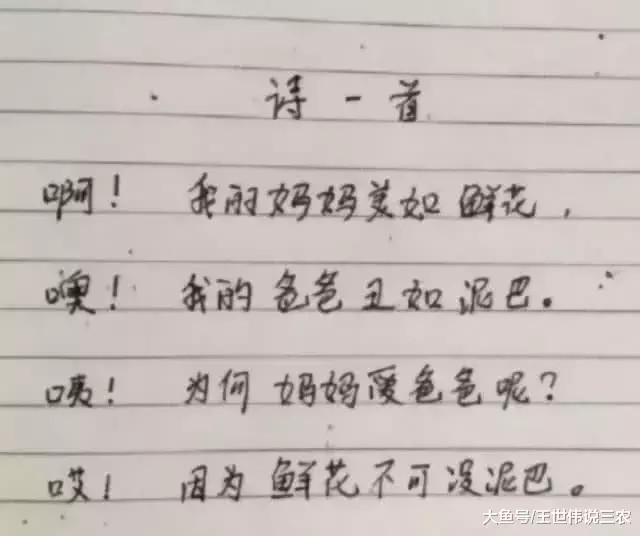 诗一首
啊！ 我的妈妈美如鲜花，
噢！ 我的爸爸丑如泥巴。
咦！ 为何妈妈爱爸爸呢？
哎！ 因为鲜花不可没泥巴。
大鱼号/王世伟说三农